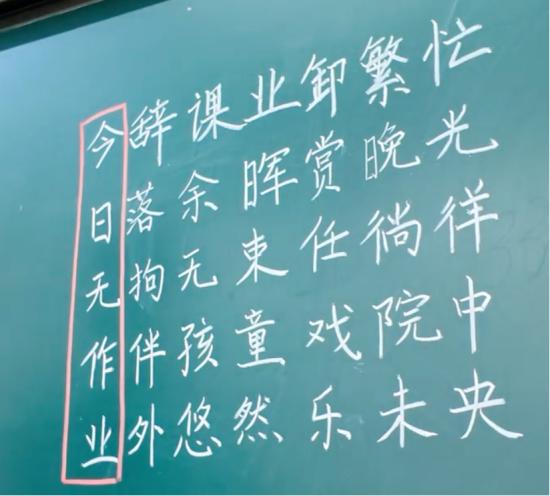 今辞课业卸繁忙
日落余晖赏晚光
无拘无束任徜徉
作伴孩童戏院中
业外悠然乐未央